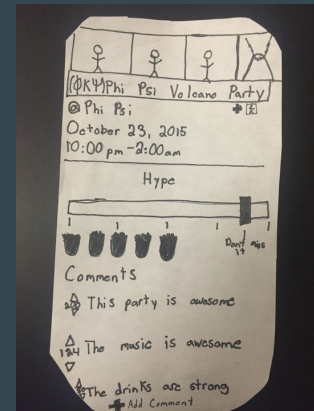 (ΦKΨ) Phi Psi Volcano Party
@ Phi Psi
October 23, 2015
10:00 pm - 2:00 am
Hype
Don't miss it
Comments
This party is awesome
124 The music is awesome
The drinks are strong
Add Comment